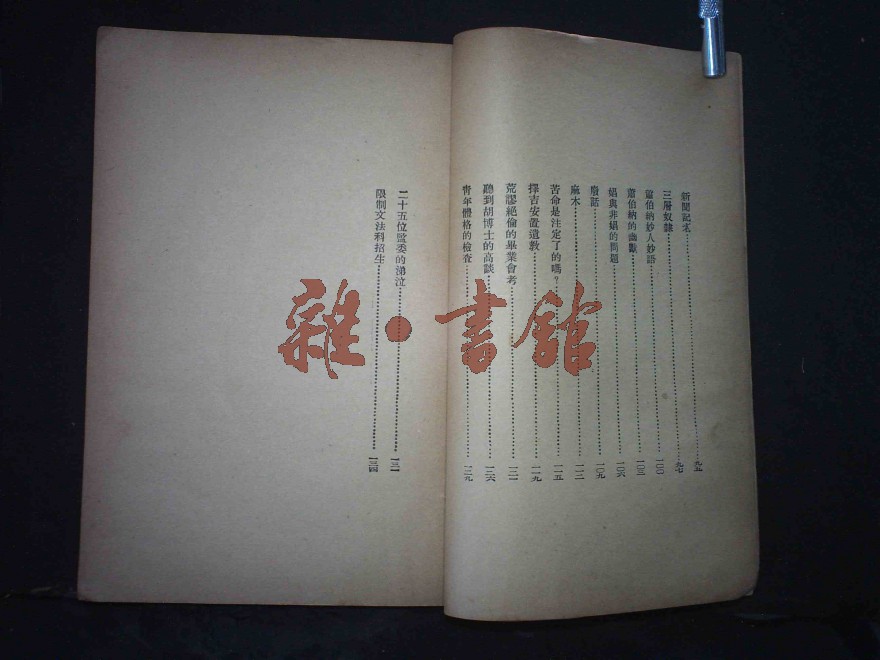 新聞記者……九五
三層奴隸……九七
蕭伯納妙人妙語……一〇〇
蕭伯納的幽默……一〇三
娼與非娼的問題……一〇六
廢話……一〇九
麻木……一一二
苦命是注定了的嗎?……一一五
擇吉安置遺教……一一九
荒謬絕倫的畢業會考……一二一
聽到胡博士的高談……一二六
青年體格的檢查……一二九
二十五位監委的涕泣……一三一
限制文法科招生……一三四
雜·書館